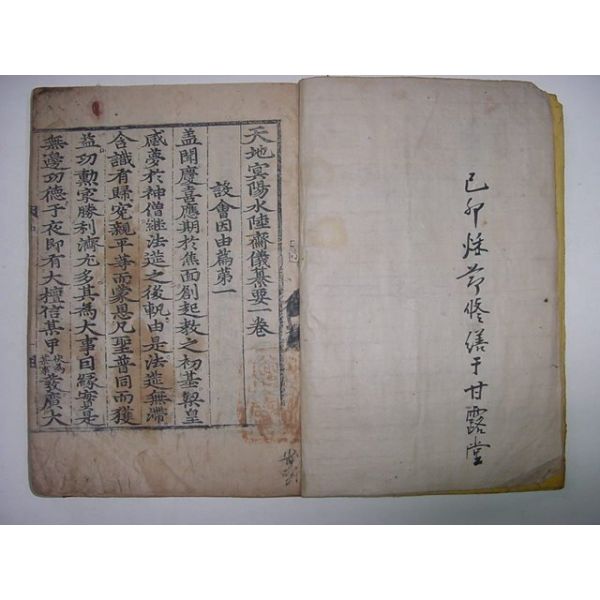 己卯秌節修繕于甘露堂
天地㝠陽水陸齋儀纂要一卷
設會因由篇第一
盖聞慶喜應期於焦面刱起教之初基梁皇
感夢於神僧継法筵之後軌由是法筵無滯
含識有歸寃親平等而蒙恩凡聖普同而獲
益功勲㝡勝利濟尤多其為大事因縁實是
無邊功德子夜即有大檀信某甲伏為某事發廣大